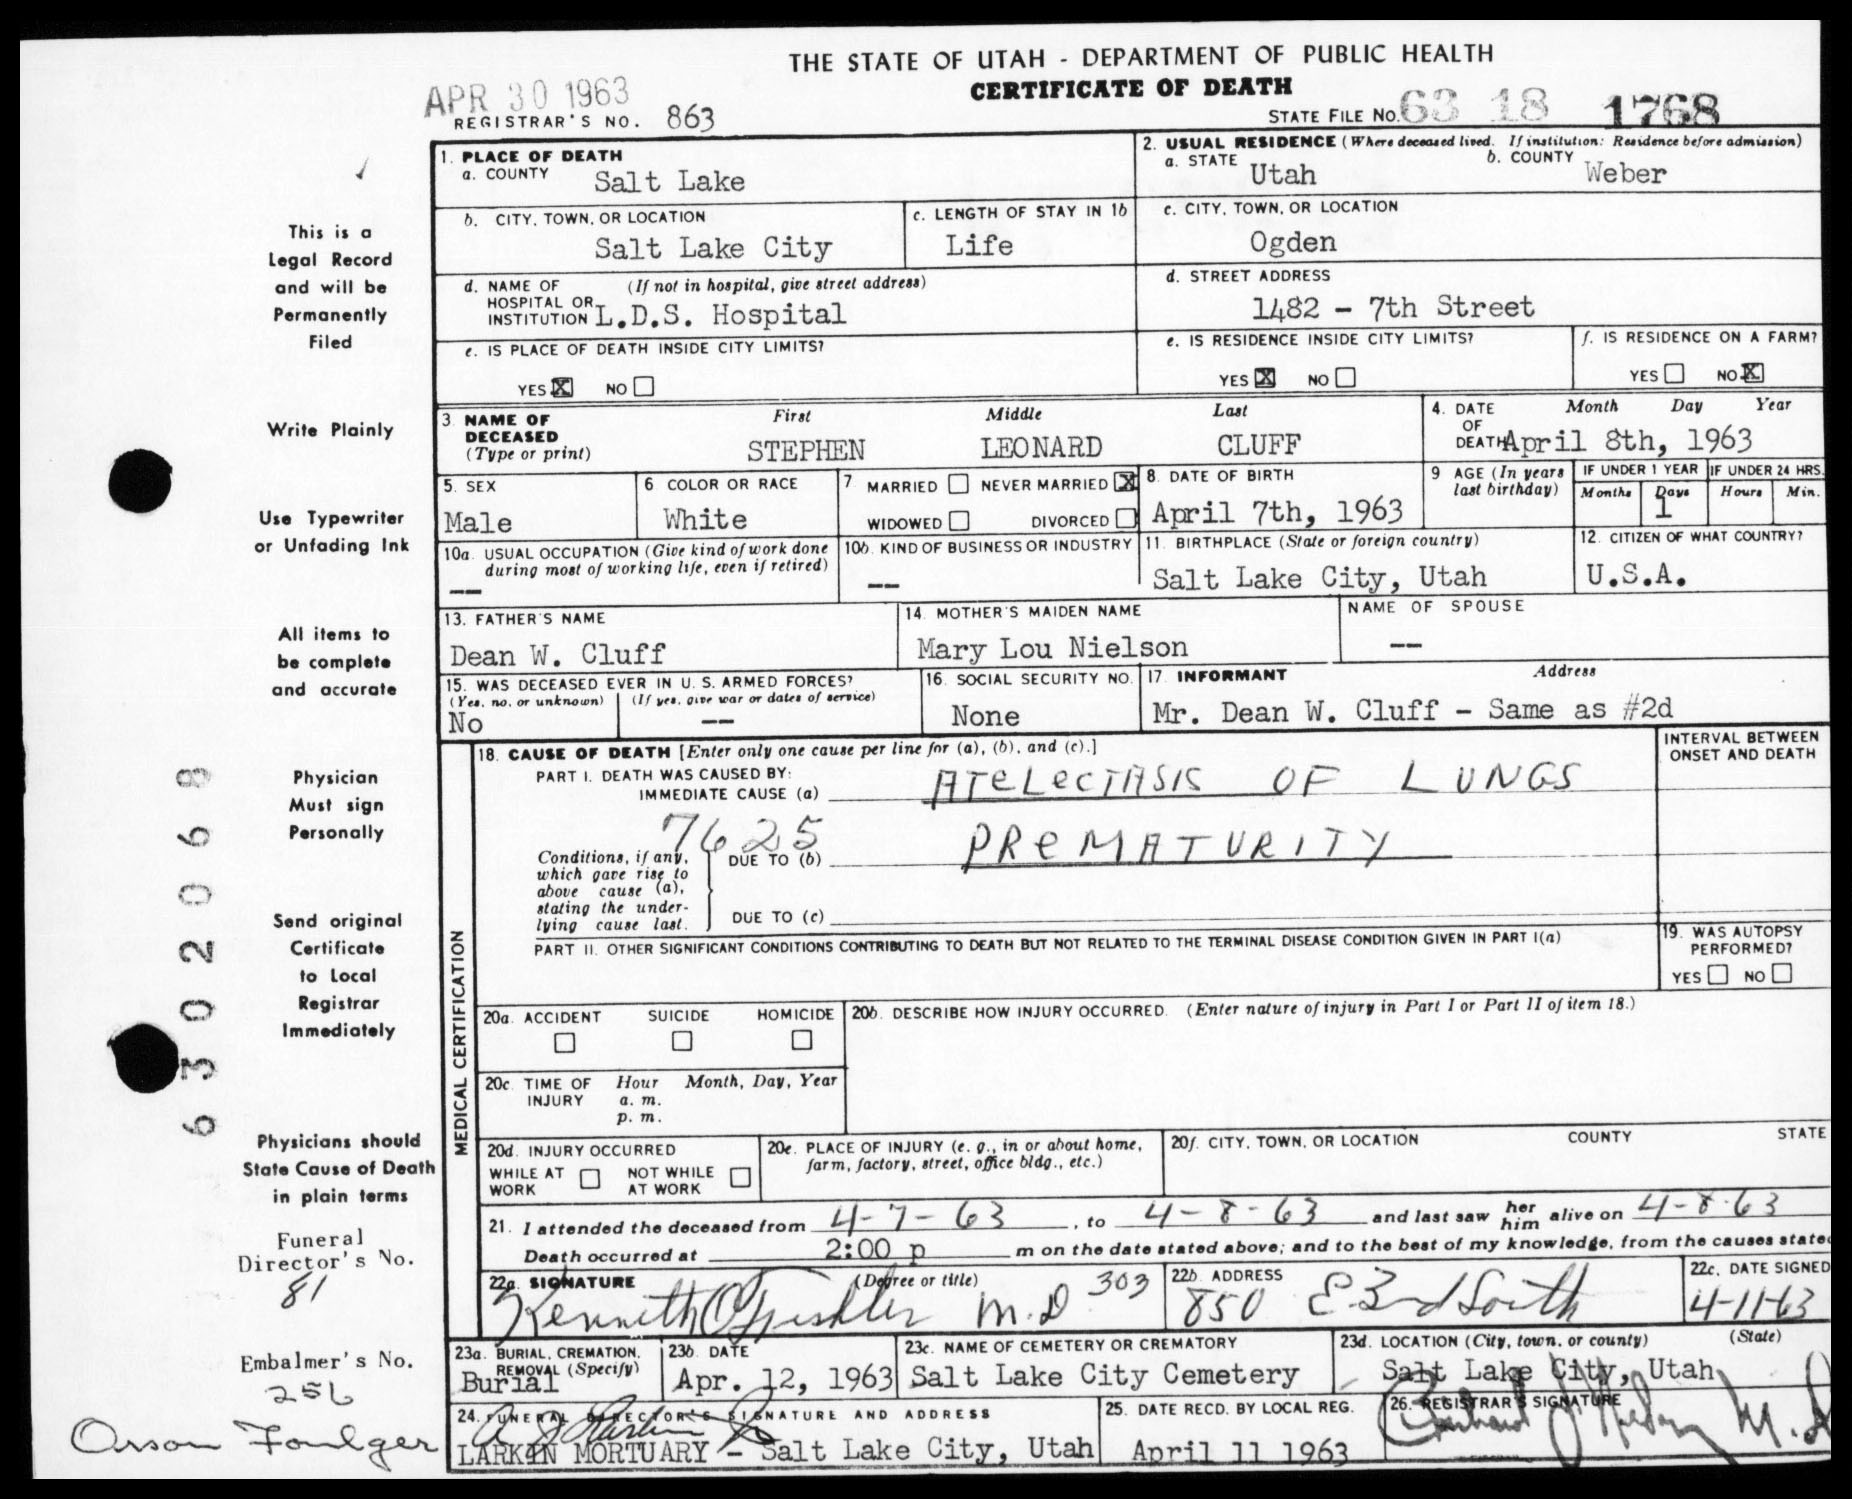 THE STATE OF UTAH - DEPARTMENT OF PUBLIC HEALTH
CERTIFICATE OF DEATH
APR 30 1963
REGISTRAR'S NO. 863
STATE FILE NO. 63 18 1768
1. PLACE OF DEATH
a. COUNTY Salt Lake
2. USUAL RESIDENCE (Where deceased lived. If institution: Residence before admission)
a. STATE Utah b. COUNTY Weber
b. CITY, TOWN, OR LOCATION Salt Lake City
c. LENGTH OF STAY IN 1b Life
c. CITY, TOWN, OR LOCATION Ogden
d. NAME OF HOSPITAL OR INSTITUTION (If not in hospital, give street address) L.D.S. Hospital
d. STREET ADDRESS 1482 - 7th Street
e. IS PLACE OF DEATH INSIDE CITY LIMITS?
YES X NO
e. IS RESIDENCE INSIDE CITY LIMITS?
YES X NO
f. IS RESIDENCE ON A FARM?
YES NO X
3. NAME OF DECEASED (Type or print)
First Middle Last
STEPHEN LEONARD CLUFF
4. DATE OF DEATH Month Day Year
April 8th, 1963
5. SEX Male
6. COLOR OR RACE White
7. MARRIED NEVER MARRIED X
WIDOWED DIVORCED
8. DATE OF BIRTH April 7th, 1963
9 AGE (In years last birthday)
IF UNDER 1 YEAR Months Days 1
IF UNDER 24 HRS. Hours Min.
10a. USUAL OCCUPATION (Give kind of work done during most of working life, even if retired) --
10b. KIND OF BUSINESS OR INDUSTRY --
11. BIRTHPLACE (State or foreign country) Salt Lake City, Utah
12. CITIZEN OF WHAT COUNTRY? U.S.A.
13. FATHER'S NAME Dean W. Cluff
14. MOTHER'S MAIDEN NAME Mary Lou Nielson
NAME OF SPOUSE --
15. WAS DECEASED EVER IN U.S. ARMED FORCES?
(Yes, no, or unknown) No (If yes, give war or dates of service) --
16. SOCIAL SECURITY NO. None
17. INFORMANT Address
Mr. Dean W. Cluff - Same as #2d
MEDICAL CERTIFICATION
18. CAUSE OF DEATH [Enter only one cause per line for (a), (b), and (c).]
PART I. DEATH WAS CAUSED BY:
IMMEDIATE CAUSE (a) ATELECTASIS OF LUNGS
7625
Conditions, if any, which gave rise to above cause (a), stating the underlying cause last.
DUE TO (b) PREMATURITY
DUE TO (c)
INTERVAL BETWEEN ONSET AND DEATH
PART II. OTHER SIGNIFICANT CONDITIONS CONTRIBUTING TO DEATH BUT NOT RELATED TO THE TERMINAL DISEASE CONDITION GIVEN IN PART I(a)
19. WAS AUTOPSY PERFORMED?
YES NO
20a. ACCIDENT SUICIDE HOMICIDE
20b. DESCRIBE HOW INJURY OCCURRED. (Enter nature of injury in Part I or Part II of item 18.)
20c. TIME OF INJURY Hour Month, Day, Year
a. m.
p. m.
20d. INJURY OCCURRED
WHILE AT WORK NOT WHILE AT WORK
20e. PLACE OF INJURY (e. g., in or about home, farm, factory, street, office bldg., etc.)
20f. CITY, TOWN, OR LOCATION COUNTY STATE
21. I attended the deceased from 4-7-63, to 4-8-63 and last saw her him alive on 4-8-63
Death occurred at 2:00 p m on the date stated above; and to the best of my knowledge, from the causes stated
22a. SIGNATURE (Degree or title) Kenneth O M.D 303
22b. ADDRESS 850 E 2nd South
22c. DATE SIGNED 4-11-63
23a. BURIAL, CREMATION, REMOVAL (Specify) Burial
23b. DATE Apr. 12, 1963
23c. NAME OF CEMETERY OR CREMATORY Salt Lake City Cemetery
23d. LOCATION (City, town, or county) (State) Salt Lake City, Utah
24. FUNERAL DIRECTOR'S SIGNATURE AND ADDRESS
LARKIN MORTUARY - Salt Lake City, Utah
25. DATE RECD. BY LOCAL REG. April 11 1963
26. REGISTRAR'S SIGNATURE M.D
This is a
Legal Record
and will be
Permanently
Filed
Write Plainly
Use Typewriter
or Unfading Ink
All items to
be complete
and accurate
Physician
Must sign
Personally
Send original
Certificate
to Local
Registrar
Immediately
Physicians should
State Cause of Death
in plain terms
Funeral
Director's No.
81
Embalmer's No.
256
Orson Foulger
6302068